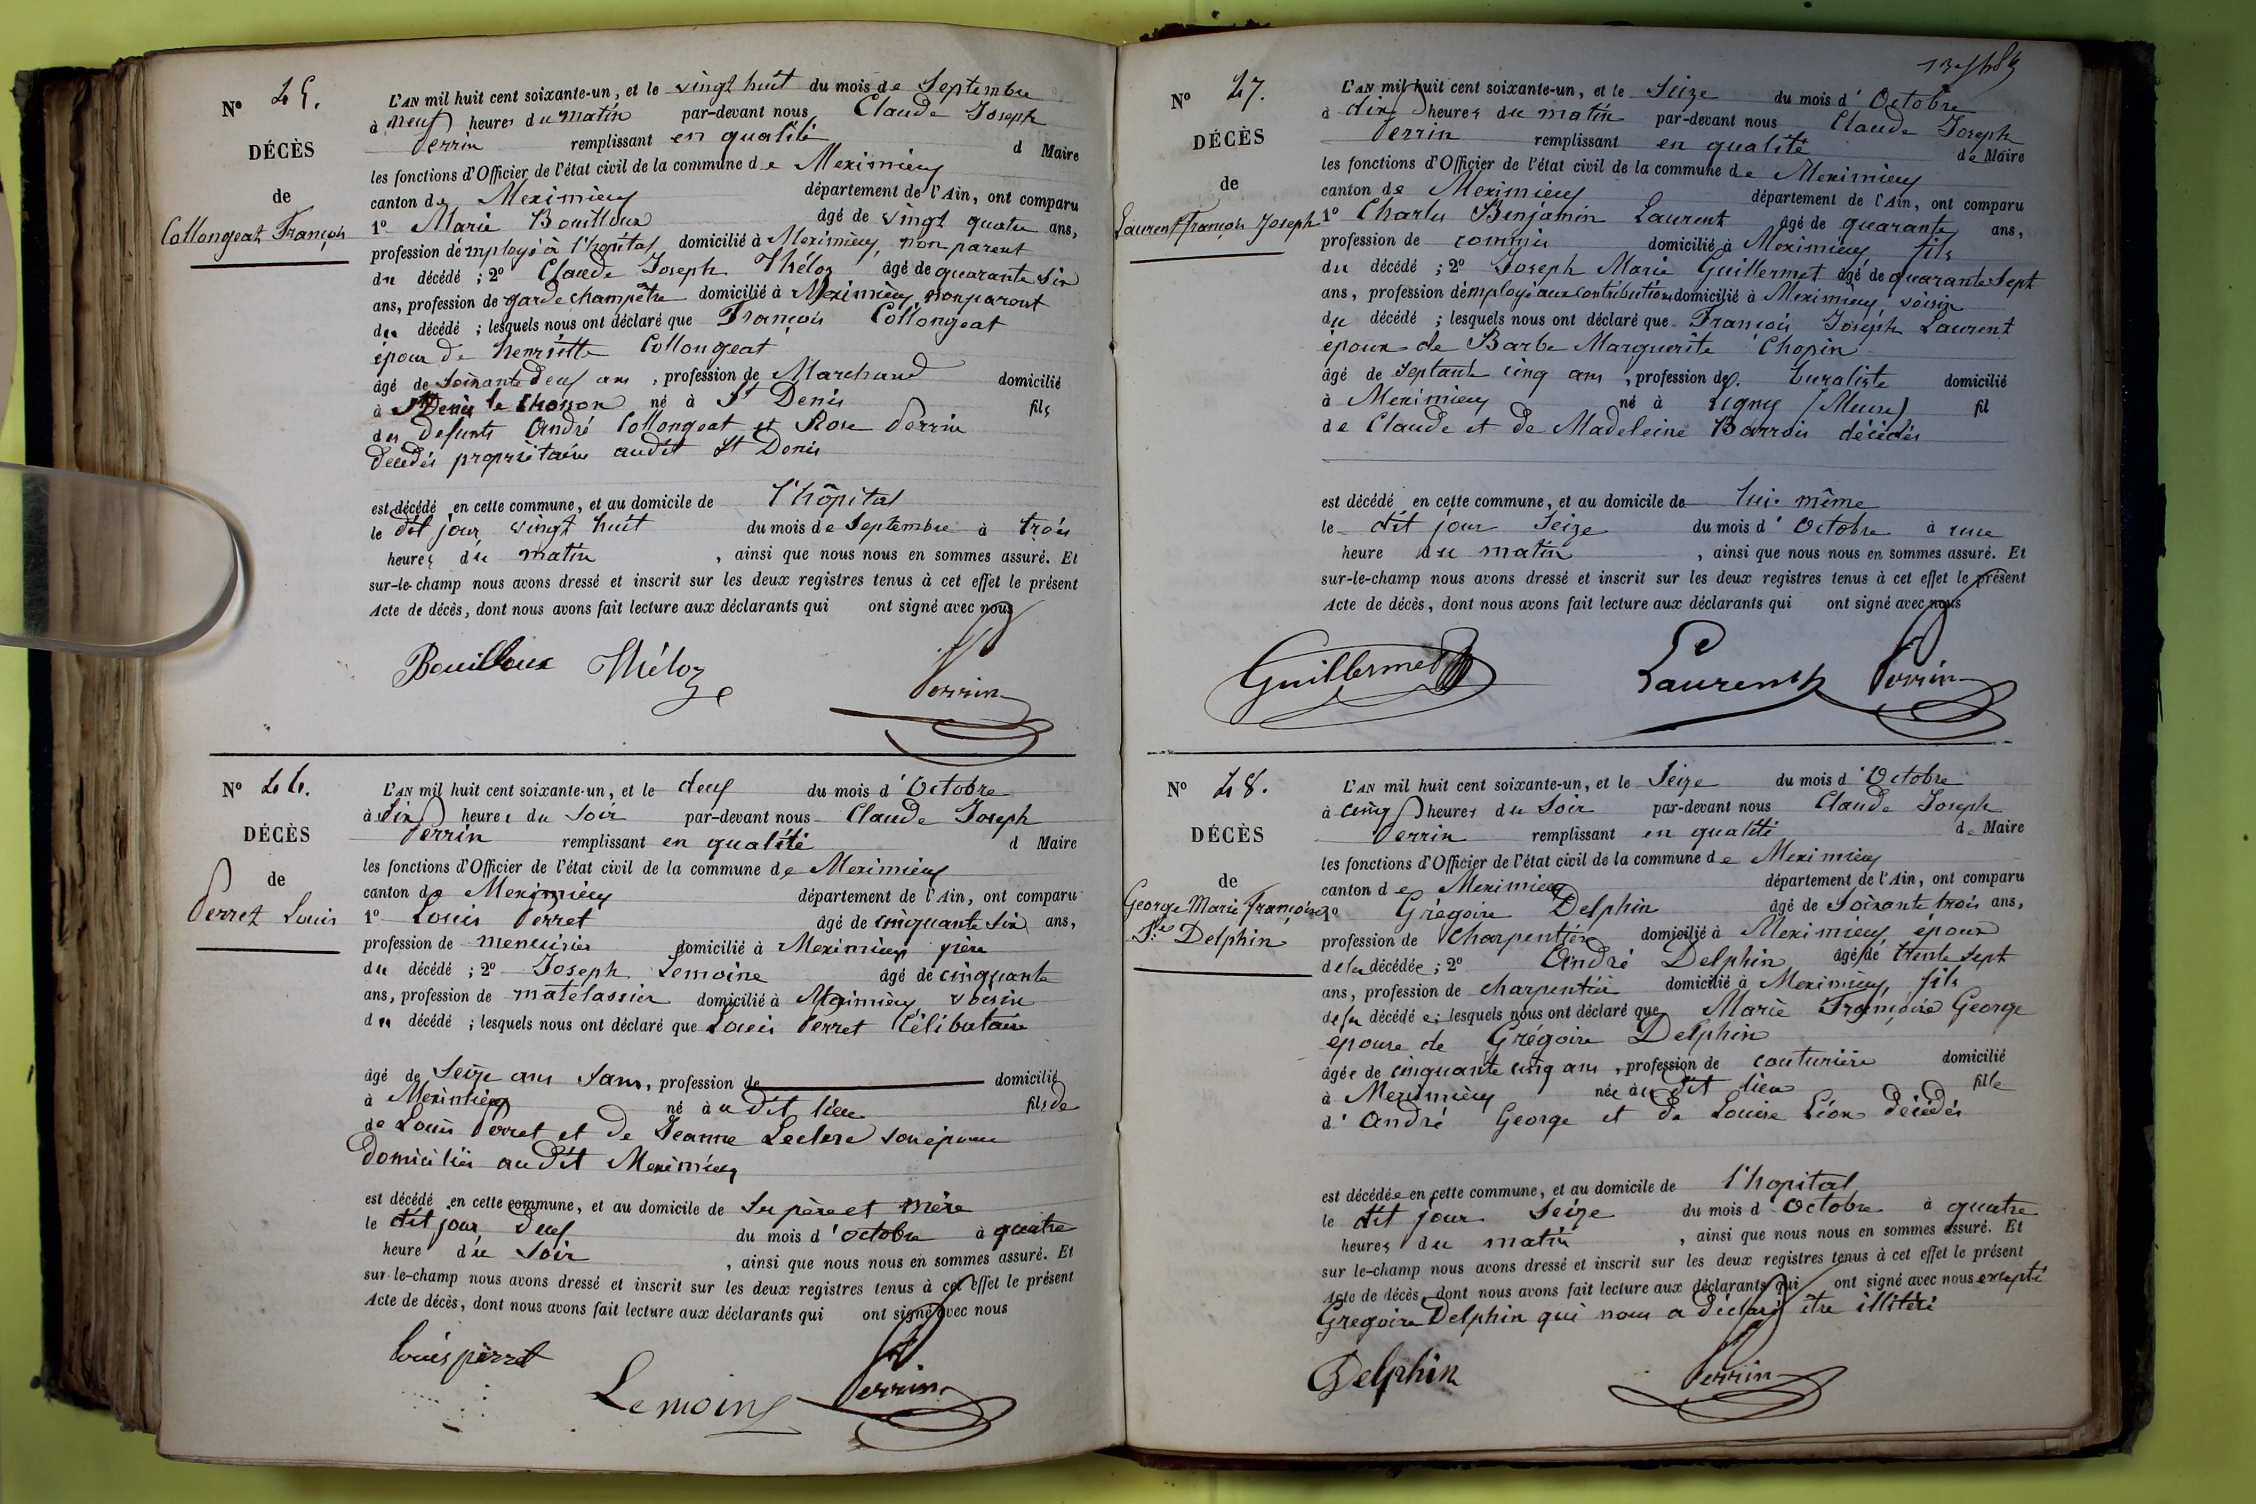 N° 45.
DÉCÈS
de
Collongeat François
L'AN mil huit cent soixante-un, et le vingt huit du mois de Septembre
à neuf heures du matin par-devant nous Claude Joseph
Perrin remplissant en qualité d Maire
les fonctions d'Officier de l'état civil de la commune de Meximieux
canton de Meximieux département de l'Ain, ont comparu
1° Marie Bouilloux âgé de vingt quatre ans,
profession d'employé à l'hopital domicilié à Meximieux, non parent
du décédé ; 2° Claude Joseph Théloz âgé de quarante six
ans, profession de garde champêtre domicilié à Meximieux, non parent
du décédé ; lesquels nous ont déclaré que François Collongeat
époux de henriette Collongeat
âgé de soixante deux ans, profession de Marchand domicilié
à St Denis le Chosson né à St Denis fils
des defunts André Collongeat et Rose Perrin
décédés propriétaires audit St Denis
est décédé en cette commune, et au domicile de l'hôpital
le dit jour vingt huit du mois de Septembre à trois
heures du matin, ainsi que nous nous en sommes assuré. Et
sur-le-champ nous avons dressé et inscrit sur les deux registres tenus à cet effet le présent
Acte de décès, dont nous avons fait lecture aux déclarants qui ont signé avec nous
Bouilloux Théloz Perrin
N° 46.
DÉCÈS
de
Perret Louis
L'AN mil huit cent soixante-un, et le deux du mois d'Octobre
à six heures du soir par-devant nous Claude Joseph
Perrin remplissant en qualité d Maire
les fonctions d'Officier de l'état civil de la commune de Meximieux
canton de Meximieux département de l'Ain, ont comparu
1° Louis Perret âgé de cinquante six ans,
profession de menuisier domicilié à Meximieux père
du décédé ; 2° Joseph Lemoine âgé de cinquante
ans, profession de matelassier domicilié à Meximieux voisin
du décédé ; lesquels nous ont déclaré que Louis Perret Célibataire
âgé de Seize ans sans, profession de domicilié
à Meximieux né au dit lieu fils de
de Louis Perret et de Jeanne Leclerc son épouse
domiciliés audit Meximieux
est décédé en cette commune, et au domicile de ses père et mère
le dit jour deux du mois d'octobre à quatre
heure du soir, ainsi que nous nous en sommes assuré. Et
sur-le-champ nous avons dressé et inscrit sur les deux registres tenus à cet effet le présent
Acte de décès, dont nous avons fait lecture aux déclarants qui ont signé avec nous
Louis perret
Lemoine Perrin
N° 47.
DÉCÈS
de
Laurent François Joseph
L'AN mil huit cent soixante-un, et le Seize du mois d'Octobre
à dix heures du matin par-devant nous Claude Joseph
Perrin remplissant en qualité de Maire
les fonctions d'Officier de l'état civil de la commune de Meximieux
canton de Meximieux département de l'Ain, ont comparu
1° Charles Benjamin Laurent âgé de quarante ans,
profession de commis domicilié à Meximieux, fils
du décédé ; 2° Joseph Marie Guillermet âgé de quarante sept
ans, profession d'employé aux contributions domicilié à Meximieux, voisin
du décédé ; lesquels nous ont déclaré que François Joseph Laurent
époux de Barbe Marguerite Chopin
âgé de septante cinq ans, profession de buraliste domicilié
à Meximieux né à Ligny (Meuse) fil
de Claude et de Madeleine Barrois décédés
est décédé en cette commune, et au domicile de lui-même
le dit jour Seize du mois d'Octobre à une
heure du matin, ainsi que nous nous en sommes assuré. Et
sur-le-champ nous avons dressé et inscrit sur les deux registres tenus à cet effet le présent
Acte de décès, dont nous avons fait lecture aux déclarants qui ont signé avec nous
Guillermet Laurent Perrin
N° 48.
DÉCÈS
de
George Marie Françoise
fe Delphin
L'AN mil huit cent soixante-un, et le Seize du mois d'Octobre
à cinq heures du soir par-devant nous Claude Joseph
Perrin remplissant en qualité de Maire
les fonctions d'Officier de l'état civil de la commune de Meximieux
canton de Meximieux département de l'Ain, ont comparu
1° Grégoire Delphin âgé de soixante trois ans,
profession de charpentier domicilié à Meximieux, époux
de la décédée ; 2° André Delphin âgé de trente sept
ans, profession de charpentier domicilié à Meximieux, fils
de la décédée ; lesquels nous ont déclaré que Marie Françoise George
épouse de Grégoire Delphin
âgée de cinquante cinq ans, profession de couturière domicilié
à Meximieux née au dit lieu fille
d'André George et de Louise Léon décédés
est décédée en cette commune, et au domicile de l'hopital
le dit jour Seize du mois d'Octobre à quatre
heures du matin, ainsi que nous nous en sommes assuré. Et
sur le-champ nous avons dressé et inscrit sur les deux registres tenus à cet effet le présent
Acte de décès, dont nous avons fait lecture aux déclarants qui ont signé avec nous excepté
Grégoire Delphin qui nous a déclaré être illitéré
Delphin Perrin